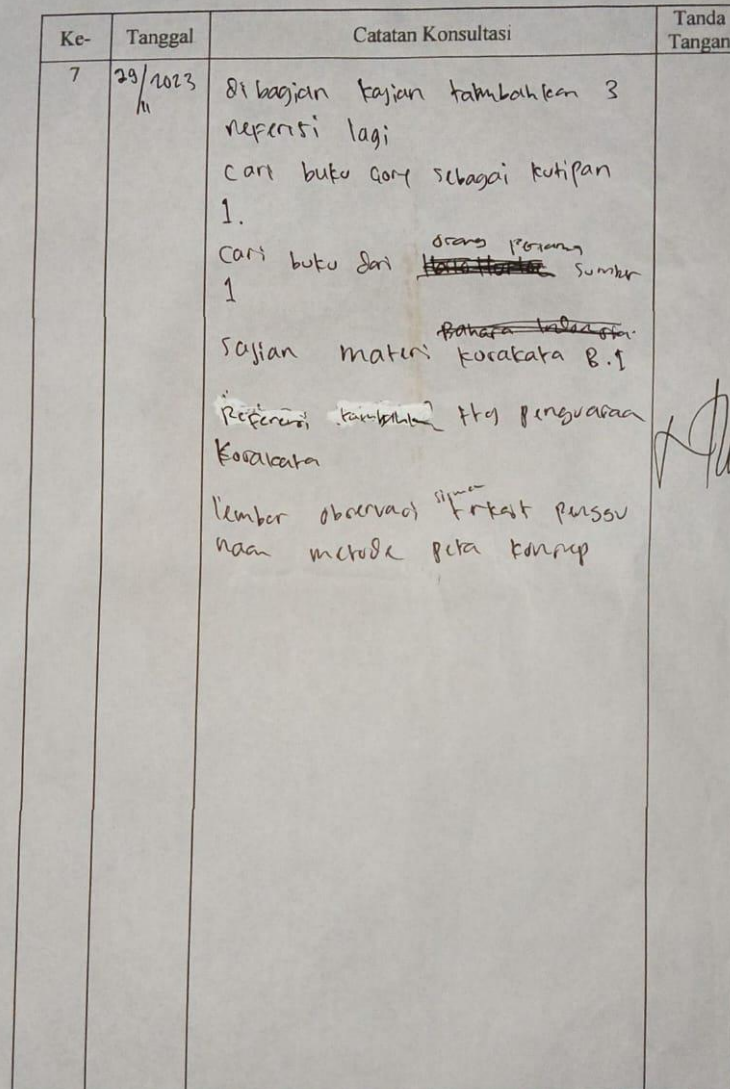 Ke- Tanggal Catatan Konsultasi Tanda Tangan
7 29/11/2023 di bagian kajian tambahkan 3
referensi lagi
cari buku Gory sebagai kutipan
1.
orang
cari buku dari sumber
1
Bahasa Indonesia
sajian materi kosakata B.1
Referensi tambahkan ttg penguasaan
kosakata
siswa
lembar observasi terkait penggu
naan metode peta konsep